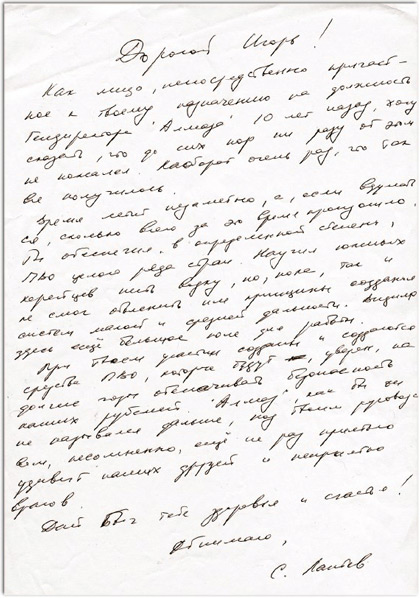 Дорогой Игорь!
Как лицо, непосредственно причаст-
ное к твоему назначению на должность
Гендиректора "Алмаза" 10 лет назад, хочу
сказать, что до сих пор ни разу от этом
не пожалел. Наоборот очень рад, что так
все получилось.
Время летит незаметно, а, если вдумать
ся, сколько всего за это время произошло.
Ты обеспечил, в определенной степени,
ПВО целого ряда стран. Научил южных
корейцев пить водку, но, пока, так и
не смог объяснить им принципы создания
систем малой и средней дальности. Видимо
здесь ещё большое поле для работы.
При твоем участии созданы и создаются
средства ПВО, которые будут, уверен, на
долгие годы обеспечивать безопасность
наших рубежей. "Алмаз", как бы он
не назывался дальше, под твоим руководст
вом, несомненно, ещё не раз приятно
удивит наших друзей и неприятно
врагов.
Дай Бог тебе здоровья и счастья!
Обнимаю,
С.